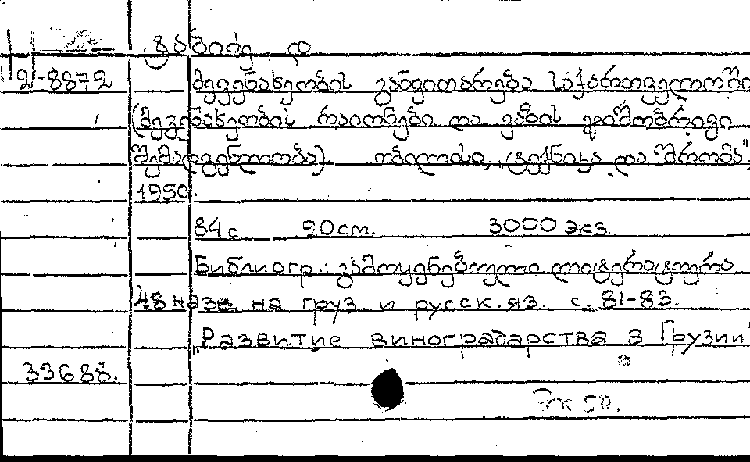 ტაბიძე დ
2-8872 მევენახეობის განვითარება საქართველოში
(მევენახეობის რაიონები და ვაზის ჯიშობრივი
შემადგენლობა). თბილისი, „ტექნიკა და შრომა“,
1950.
84 с 20 см. 3000 экз.
Библиогр.: გამოყენებული ლიტერატურა
48 назв. на груз и русск. яз. с. 81-83.
„Развитие виноградарства в Грузии“
33688.